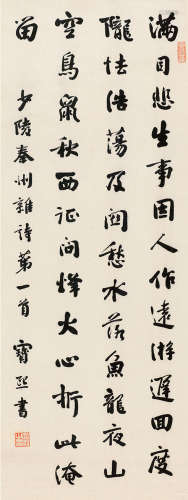 滿目悲生事因人作遠游遲回度
隴怯浩蕩及關愁水落魚龍夜山
空鳥鼠秋西征問烽火心折此淹
留　少陵秦州雜詩第一首　寶熙書